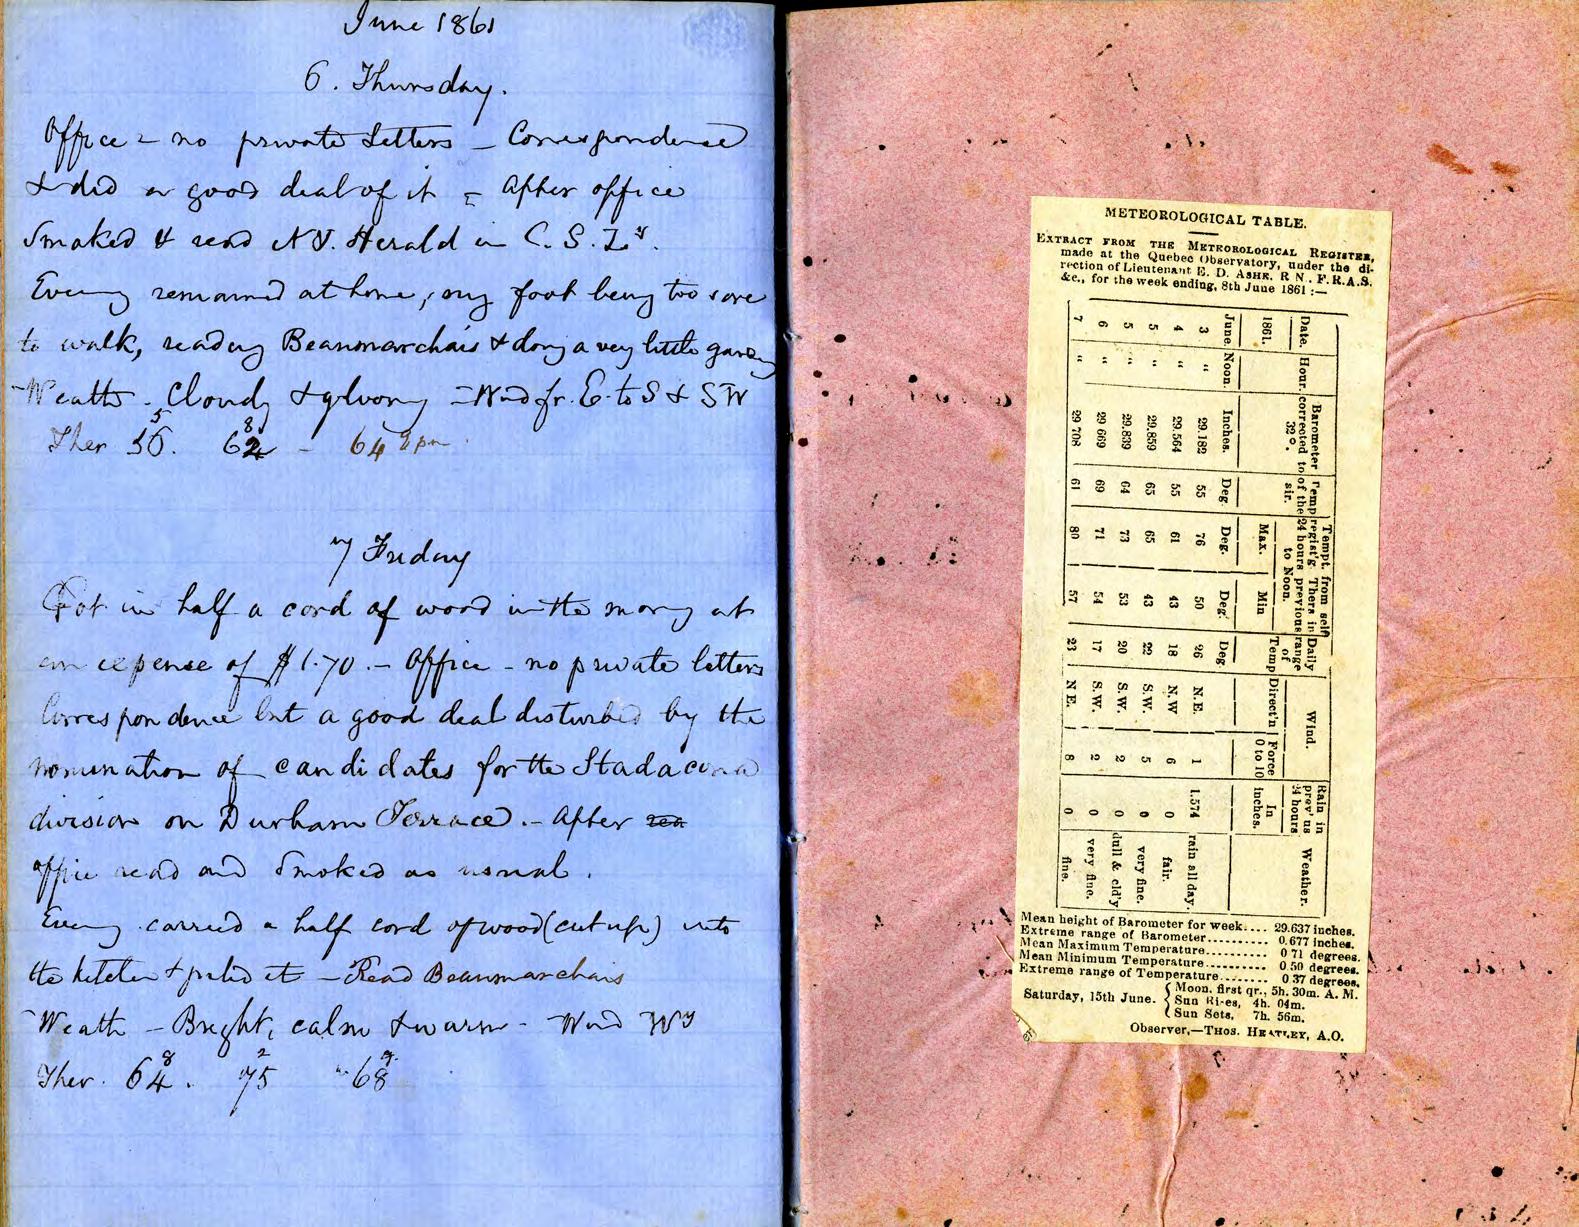 June 1861
6. Thursday.
Office - no private Letters - Correspondence
& did a good deal of it - After office
Smoked & read N.Y. Herald in C. S. L.y.
Eveng remained at home, my foot being too sore
to walk, readg Beaumarchais & doing a very little gardg
Weathr. Cloudy & gloomy - Wnd fr. E. to S & SW
Ther 56. 62 - 64 9 pm.
7 Friday
Got in half a cord of wood in the morng at
an expense of $1.70. - Office - no private letters
Correspondence but a good deal disturbed by the
nomination of candidates for the Stadacona
division on Durham Terrace. - After tea
office read and smoked as usual.
Eveng carried a half cord of wood (cut up) into
the kitchen & piled it - Read Beaumarchais
Weath - Bright, calm & warm - Wnd Wy
Ther. 64 8. 75 2 68 9.
METEOROLOGICAL TABLE.
EXTRACT FROM THE METEOROLOGICAL REGISTER,
made at the Quebec Observatory, under the di-
rection of Lieutenant E. D. ASHE. R N. F.R.A.S.
&c., for the week ending, 8th June 1861 :—
Date. Hour. Barometer corrected to 32°. Temp of the air. Tempt. from self regist'g. Thers in 24 hours previous to Noon. Daily range of Temp Wind. Rain in prev'us 24 hours Weather.
1861. Max. Min Direct'n Force 0 to 10 In inches.
June. Noon. Inches. Deg Deg. Deg. Deg
3 " 29.182 55 76 50 26 N.E. 1 1.574 rain all day.
4 " 29.564 55 61 43 18 N.W 6 0 fair.
5 " 29.859 65 65 43 22 S.W. 5 0 very fine.
5 " 29.839 64 73 53 20 S.W. 2 0 dull & cld'y
6 " 29 669 69 71 54 17 S.W. 2 0 very fine.
7 " 29 708 61 80 57 23 NE. 8 0 fine.
Mean height of Barometer for week.... 29.637 inches.
Extreme range of Barometer........... 0.677 inches.
Mean Maximum Temperature........... 0 71 degrees.
Mean Minimum Temperature........... 0.50 degrees.
Extreme range of Temperature........ 0 37 degrees.
Saturday, 15th June. { Moon. first qr., 5h. 30m. A. M.
Sun Rises, 4h. 04m.
Sun Sets, 7h. 56m.
Observer,—THOS. HEATLEY, A.O.